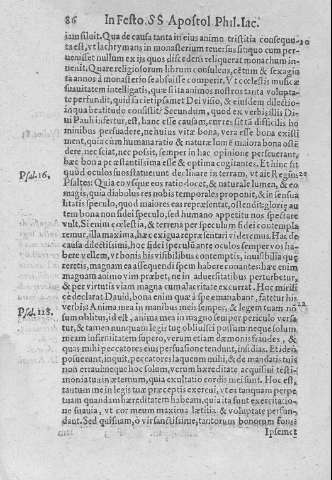 86 In Festo. SS Apostol Phil. Iac.
iam fluit. Qua de causa tanta in eius animo tristitia consequu-
ta est, vt lachrymans in monasterium reuersus sit, quo cum per-
uenisset nullum ex ijs quos discedens reliquerat monachum in-
uenit. Quare religiosorum librum consulens, centum & sexagin
ta annos à monasterio se abfuisse comperit. Vt è cœlestis musicæ
suauitatem intelligatis, quæ si ita animos nostros tanta volupta-
te perfundit, quid faciet ipsamet Dei visio, & eiusdem dilectio-
in qua beatitudo consistit? Secundum, quod ex verbis illis Di-
ui Pauli infertur, est, hanc esse causam, cur res sit tā difficilis ho
minibus persuadere, ne huius vitæ bona, vera esse bona existi
ment, quia cum humana ratio & naturæ lumē maiora bona ostē
dere, nec sciat, nec possit, semper in hac opinione perseuerant,
hæc bona præstantissima esse & optima cogitantes. Et hinc fit
Psal. 16. quòd oculos suos statuerunt declinare in terram, vt ait Regius
Psaltes: Quia eo vsque eos ratio docet, & naturale lumen, & eo
magis, quia diabolus res nobis temporales proponit, & in sensua
litatis speculo, quod maiores eas repræsentat, ostendit, glorię au
tem bona non fidei speculo, sed humano appetitu nos spectare
vult. Si enim cœlestia, & terrena per speculum fidei contempla
remur, illa maxima, hæc exigua repræsentari videremus. Hac de
causa dilectissimi, hoc fidei speculū ante oculos semper vos ha-
bere vellem, vt bonis his visibilibus contemptis, inuisibilia quæ
reretis, magnam eis assequendi spem habere conantes: hæc enim
magnam animo vim præbet, ne in aduersitatibus perturbetur,
& per virtutis viam magna cum alacritate excurrat. Hoc mirifi
ce declarat Dauid, bona enim quæ à spe emanabant, fatetur his
Psal. 118. verbis: Anima mea in manibus meis semper, & legem tuam nō
sum oblitus, id est, anima mea in magno semper periculo versa
tur, & tamen nunquam legis tuę obliuisci possum neque solum
meam infirmitatem supero, verum etiam dæmonis fraudes, &
quas mihi peccatores eius persuasione tendunt, insidias. Et ideò
posuerunt, inquit, peccatores laqueum mihi, & de mandatis tuis
non erraui: neque hoc solum, verum hæreditate acquisiui testi-
monia tua in æternum, quia exultatio cordis mei sunt. Hoc est,
tantum me in legis tuæ præceptis exercui, vt ea tanquam perpe
tuam quandam hæreditatem habeam, quia ita sunt exercitatio-
ne suauia, vt cor meum maxima lætitia & voluptate persun-
dant. Sed quisnam, ò vir sanctissime, tantorum bonorum fons?
Ipsemet